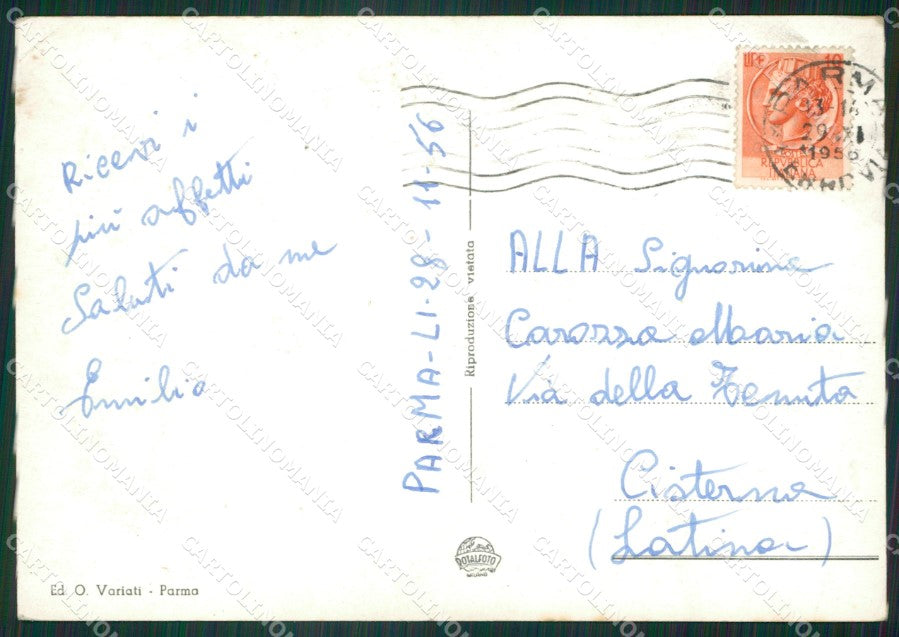 Ricevi i
più affetti
Saluti da me
Emilio
PARMA-LI-28-11-56
Riproduzione vietata
LIRE 10
REPVBBLICA
ITALIANA
PARMA
29 XI
1956
ALLA Signorina
Carozza Maria
Via della Tenuta
Cisterna
(Latina)
ROTALFOTO
MILANO
Ed. O. Variati - Parma
CARTOLINOMANIA